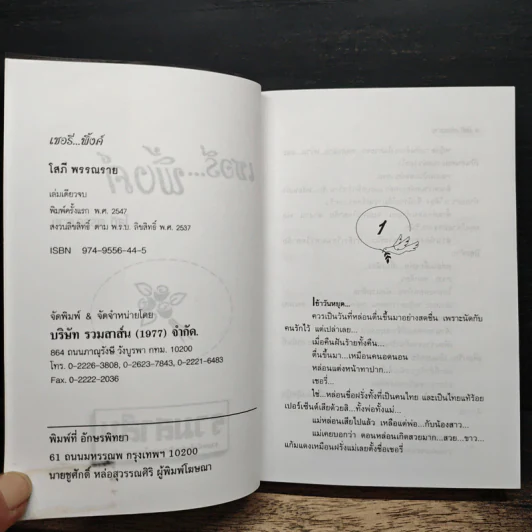 เชอรี...พิ้งค์
โสภี พรรณราย
เล่มเดียวจบ
พิมพ์ครั้งแรก พ.ศ. 2547
สงวนลิขสิทธิ์ ตาม พ.ร.บ. ลิขสิทธิ์ พ.ศ. 2537
ISBN 974-9556-44-5
จัดพิมพ์ & จัดจำหน่ายโดย
บริษัท รวมสาส์น (1977) จำกัด.
864 ถนนภาณุรังษี วังบูรพา กทม. 10200
โทร. 0-2226-3808, 0-2623-7843, 0-2221-6483
Fax. 0-2222-2036
พิมพ์ที่ อักษรพิทยา
61 ถนนมหรรณพ กรุงเทพฯ 10200
นายชูศักดิ์ หล่อสุวรรณศิริ ผู้พิมพ์โฆษณา
1
เช้าวันหยุด...
ควรเป็นวันที่หล่อนตื่นขึ้นมาอย่างสดชื่น เพราะนัดกับ
คนรักไว้ แต่เปล่าเลย...
เมื่อคืนฝันร้ายทั้งคืน...
ตื่นขึ้นมา...เหมือนคนอดนอน
หล่อนแต่งหน้าทาปาก...
เชอรี่...
ใช่...หล่อนชื่อฝรั่งทั้งที่เป็นคนไทย และเป็นไทยแท้ร้อย
เปอร์เซ็นต์เสียด้วยสิ...ทั้งพ่อทั้งแม่...
แม่หล่อนเสียไปแล้ว เหลือแต่พ่อ...กับน้องสาว...
แม่เคยบอกว่า ตอนหล่อนเกิดสวยมาก...สวย...ขาว...
แก้มแดงเหมือนฝรั่งแม่เลยตั้งชื่อเชอรี่